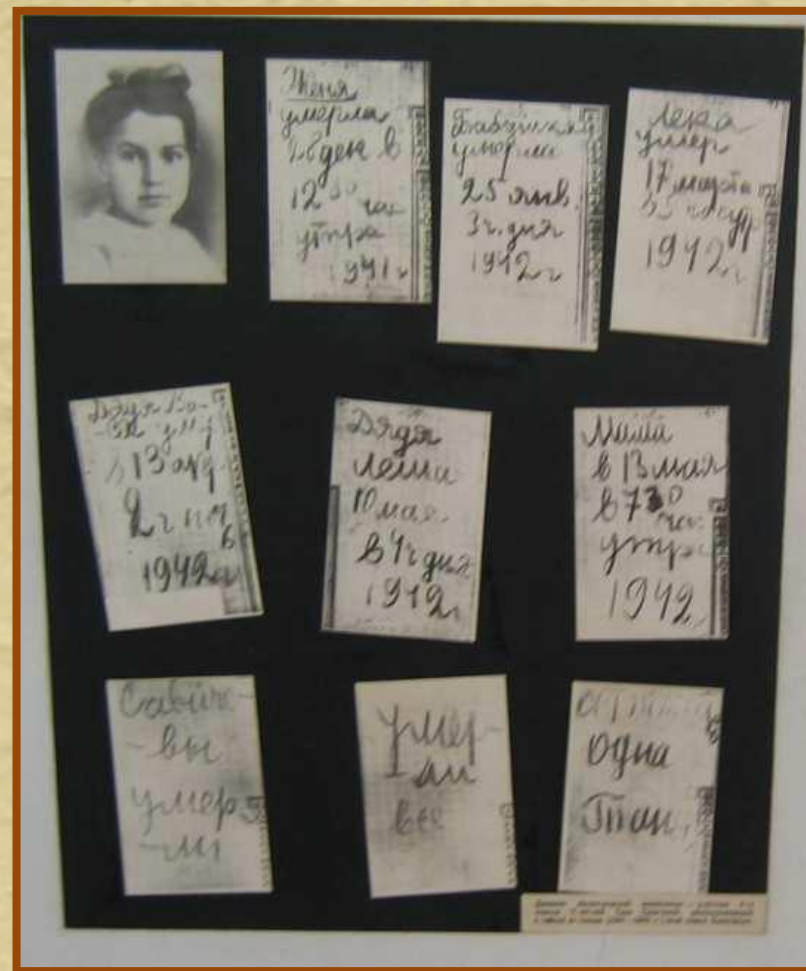 Женя
умерла
28 дек в
12³⁰ час
утра
1941 г
Бабушка
умерла
25 янв.
3 ч. дня
1942 г
Лека
умер
17 марта
в 5 час утр
1942 г
Дядя Ва-
-ся умер
в 13 апр
2 ч ночь
1942 г
Дядя
Леша
10 мая
в 4 ч дня
1942 г
Мама
в 13 мая
в 7³⁰ час
утра
1942
Савиче-
-вы
умер
-ли
умер-
-ли
все
осталась
одна
Таня